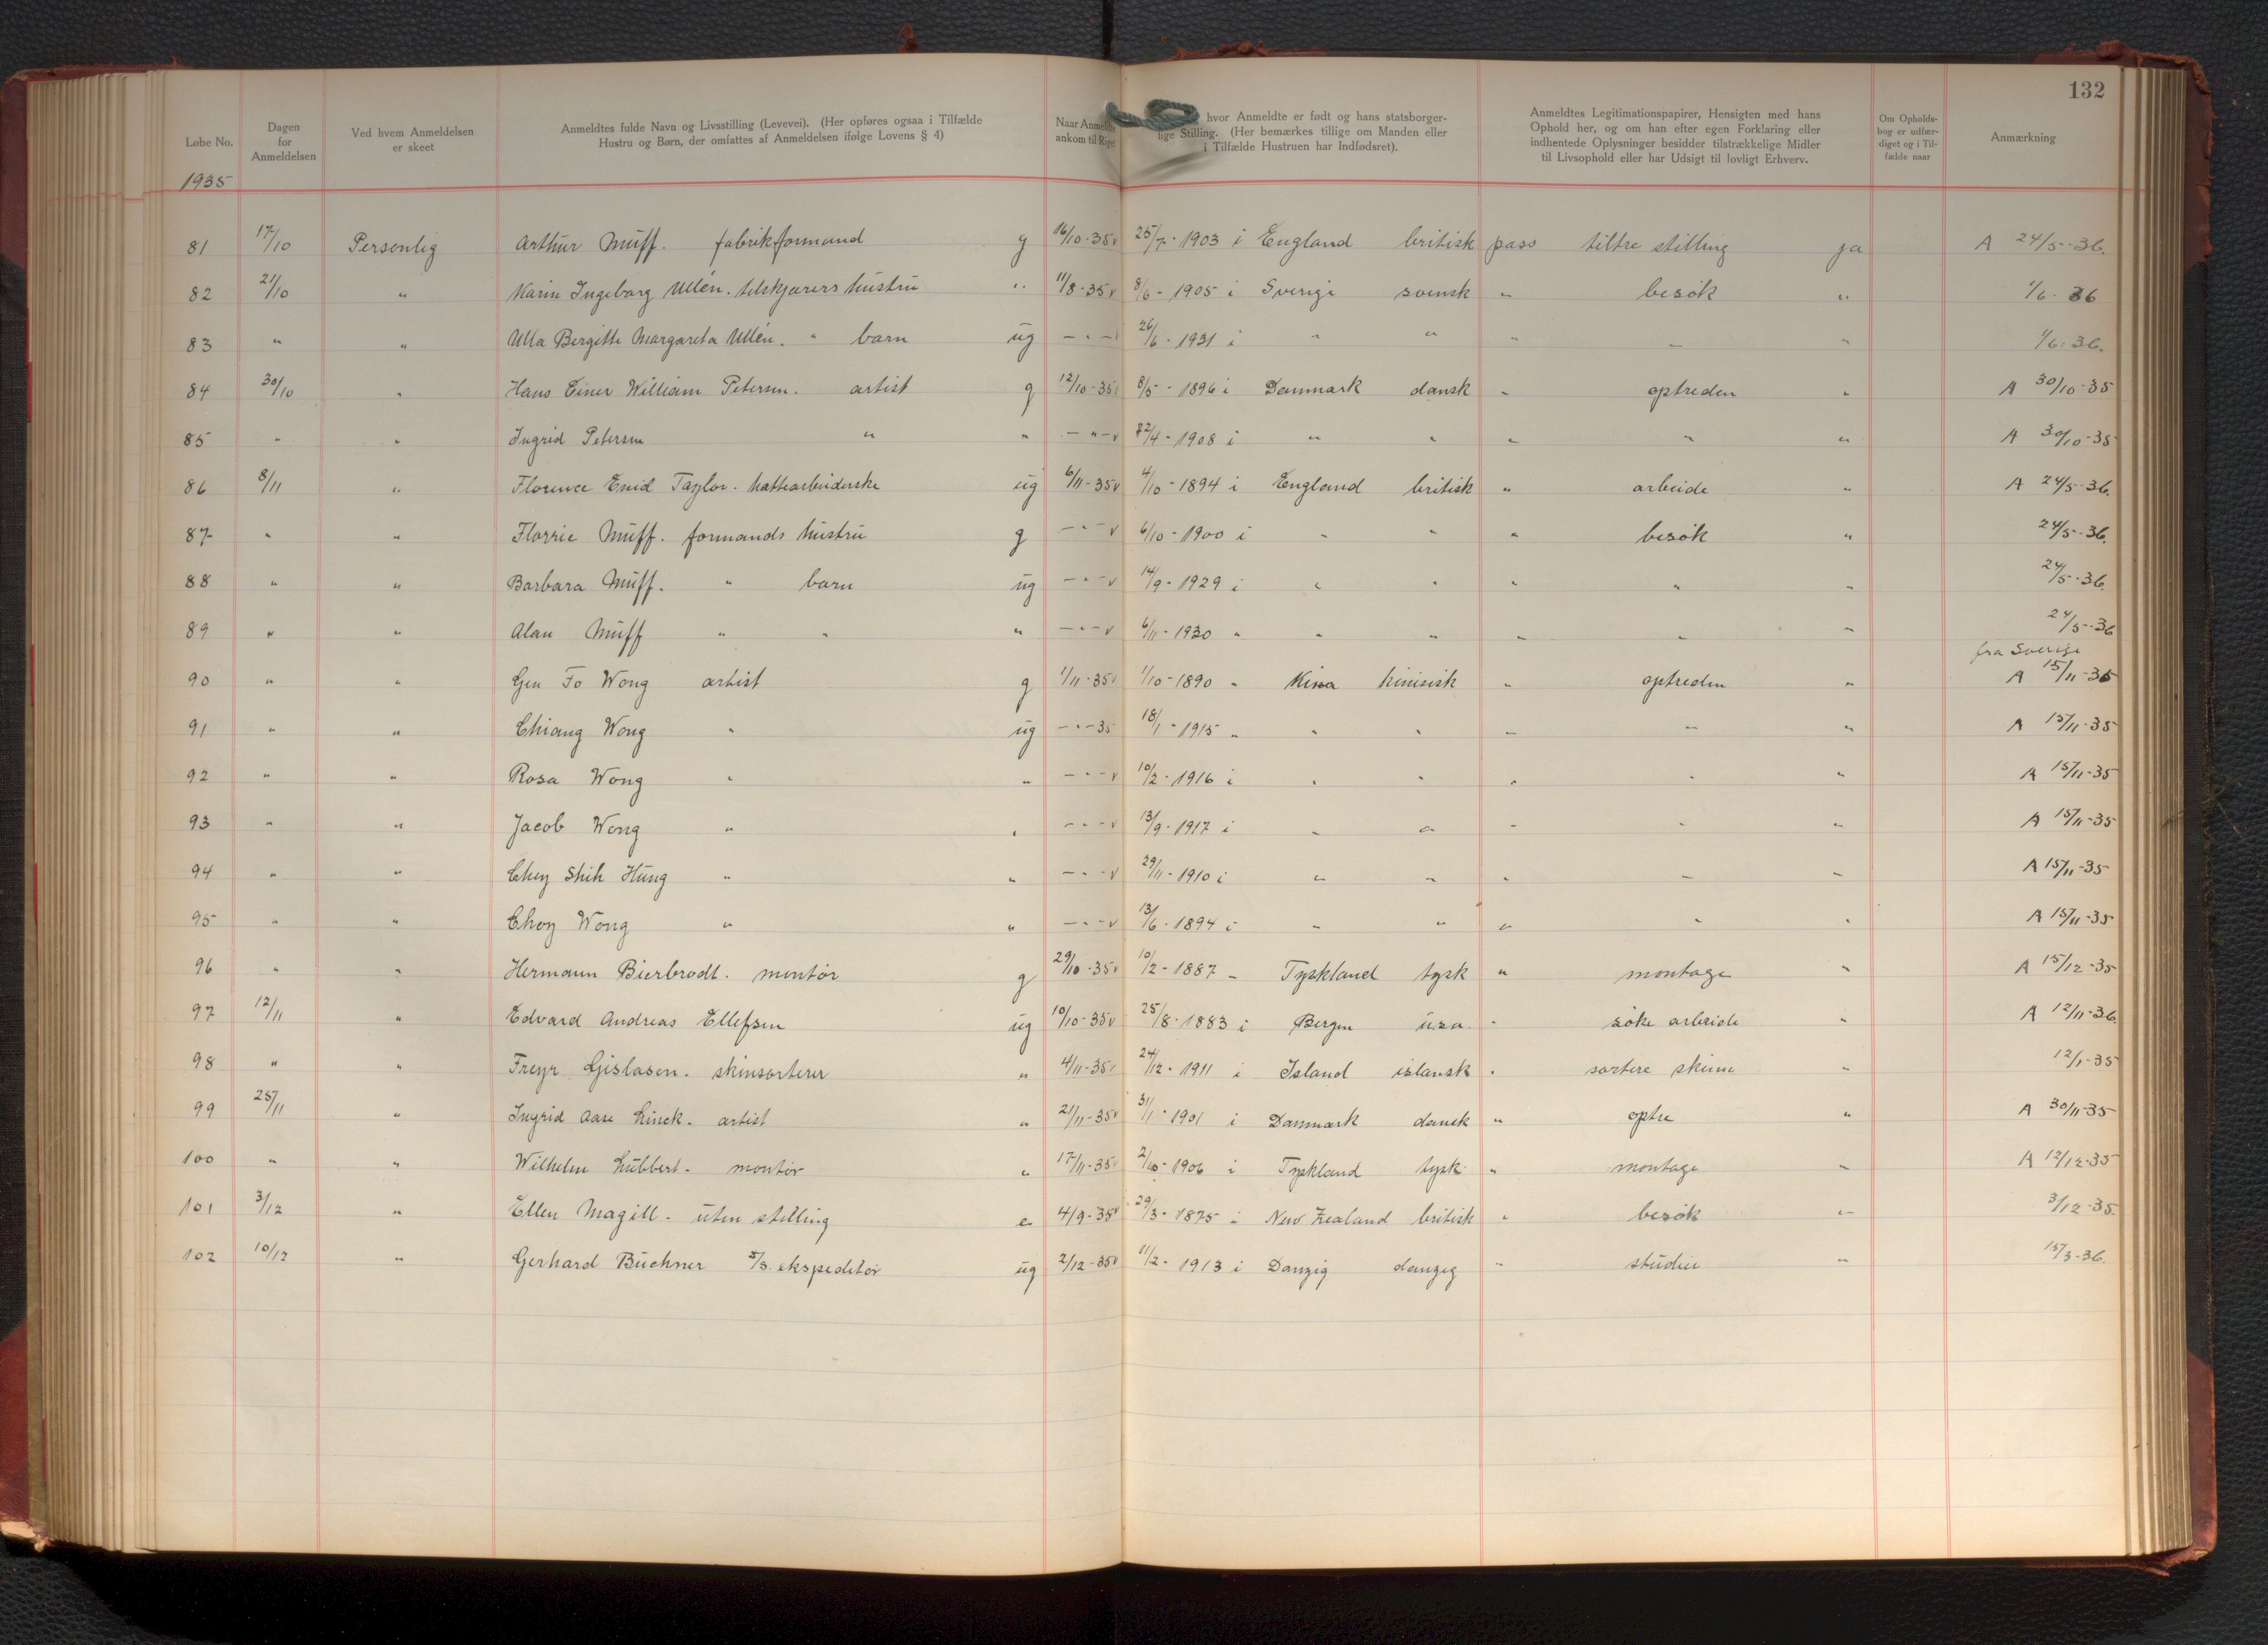 132
Løbe No.
Dagen for Anmeldelsen
Ved hvem Anmeldelsen er skeet
Anmeldtes fulde Navn og Livsstilling (Levevei). (Her opføres ogsaa i Tilfælde Hustru og Børn, der omfattes af Anmeldelsen ifølge Lovens § 4)
Naar Anmeldte ankom til Riget
hvor Anmeldte er født og hans statsborgerlige Stilling. (Her bemærkes tillige om Manden eller i Tilfælde Hustruen har Indfødsret).
Anmeldtes Legitimationspapirer, Hensigten med hans Ophold her, og om han efter egen Forklaring eller indhentede Oplysninger besidder tilstrækkelige Midler til Livsophold eller har Udsigt til lovligt Erhverv.
Om Opholdsbog er udfærdiget og i Tilfælde naar
Anmærkning
1935
81 17/10 Personlig Arthur Muff. fabrikformand g 16/10-35 v 25/7-1903 i England britisk pass tiltre stilling ja A 24/5-36.
82 21/10 " Karin Ingeborg Ullén. tilskjærers hustru " 11/8-35 v 8/6-1905 i Sverige svensk " besök " 1/6-36
83 " " Ulla Bergitte Margareta Ullén. " barn ug -"- 26/6-1931 i " " " " " 1/6-36.
84 30/10 " Hans Einer William Petersen. artist g 12/10-35 8/5-1896 i Danmark dansk " optreden " A 30/10-35
85 " " Ingrid Petersen " " -"- v 22/4-1908 i " " " " " A 30/10-35
86 8/11 " Florence Enid Taylor. hattearbeiderske ug 6/11-35 v 4/10-1894 i England britisk " arbeide " A 24/5-36.
87 " " Florrie Muff. formands hustru g -"- v 6/10-1900 i " " " besök " 24/5-36.
88 " " Barbara Muff. " barn ug -"- v 14/9-1929 i " " " " " 24/5-36.
89 " " Alan Muff " " " -"- v 6/11-1930 " " " " " " 24/5-36
fra Sverige
90 " " Gen Fo Wong artist g 1/11-35 1/10-1890 " Kina kinisisk " optreden " A 15/11-35
91 " " Chiang Wong " ug -"-35 18/1-1915 " " " " " " A 15/11-35
92 " " Rosa Wong " " -"- v 10/2-1916 i " " " " " A 15/11-35
93 " " Jacob Wong " " -"- v 13/9-1917 i " " " " " A 15/11-35
94 " " Chey Shih Hung " " -"- v 29/11-1910 i " " " " " A 15/11-35
95 " " Choy Wong " " -"- v 13/6-1894 i " " " " " A 15/11-35
96 " " Hermann Bierbrodt. montör g 29/10-35 v 10/2-1887 " Tyskland tysk " montage " A 15/12-35
97 12/11 " Edvard Andreas Ellefsen ug 10/10-35 v 25/8-1883 i Bergen u.s.a. " söke arbeide " A 12/11-36.
98 " " Freyr Gislasen. skinsorterer " 4/11-35 24/12-1911 i Island islansk " sortere skinn " 12/1-35
99 25/11 " Ingrid Aase Linck. artist " 21/11-35 v 31/1-1901 i Danmark dansk " optre " A 30/11-35
100 " " Wilhelm Lübbert. montör " 17/11-35 2/10-1906 i Tyskland tysk " montage " A 12/12-35
101 3/12 " Ellen Magill. uten stilling e 4/9-35 v 29/3-1875 i New Zealand britisk " besök " 3/12-35.
102 10/12 " Gerhard Buchner ekspeditör ug 2/12-35 v 11/2-1913 i Danzig danzig " studier " 15/3-36.